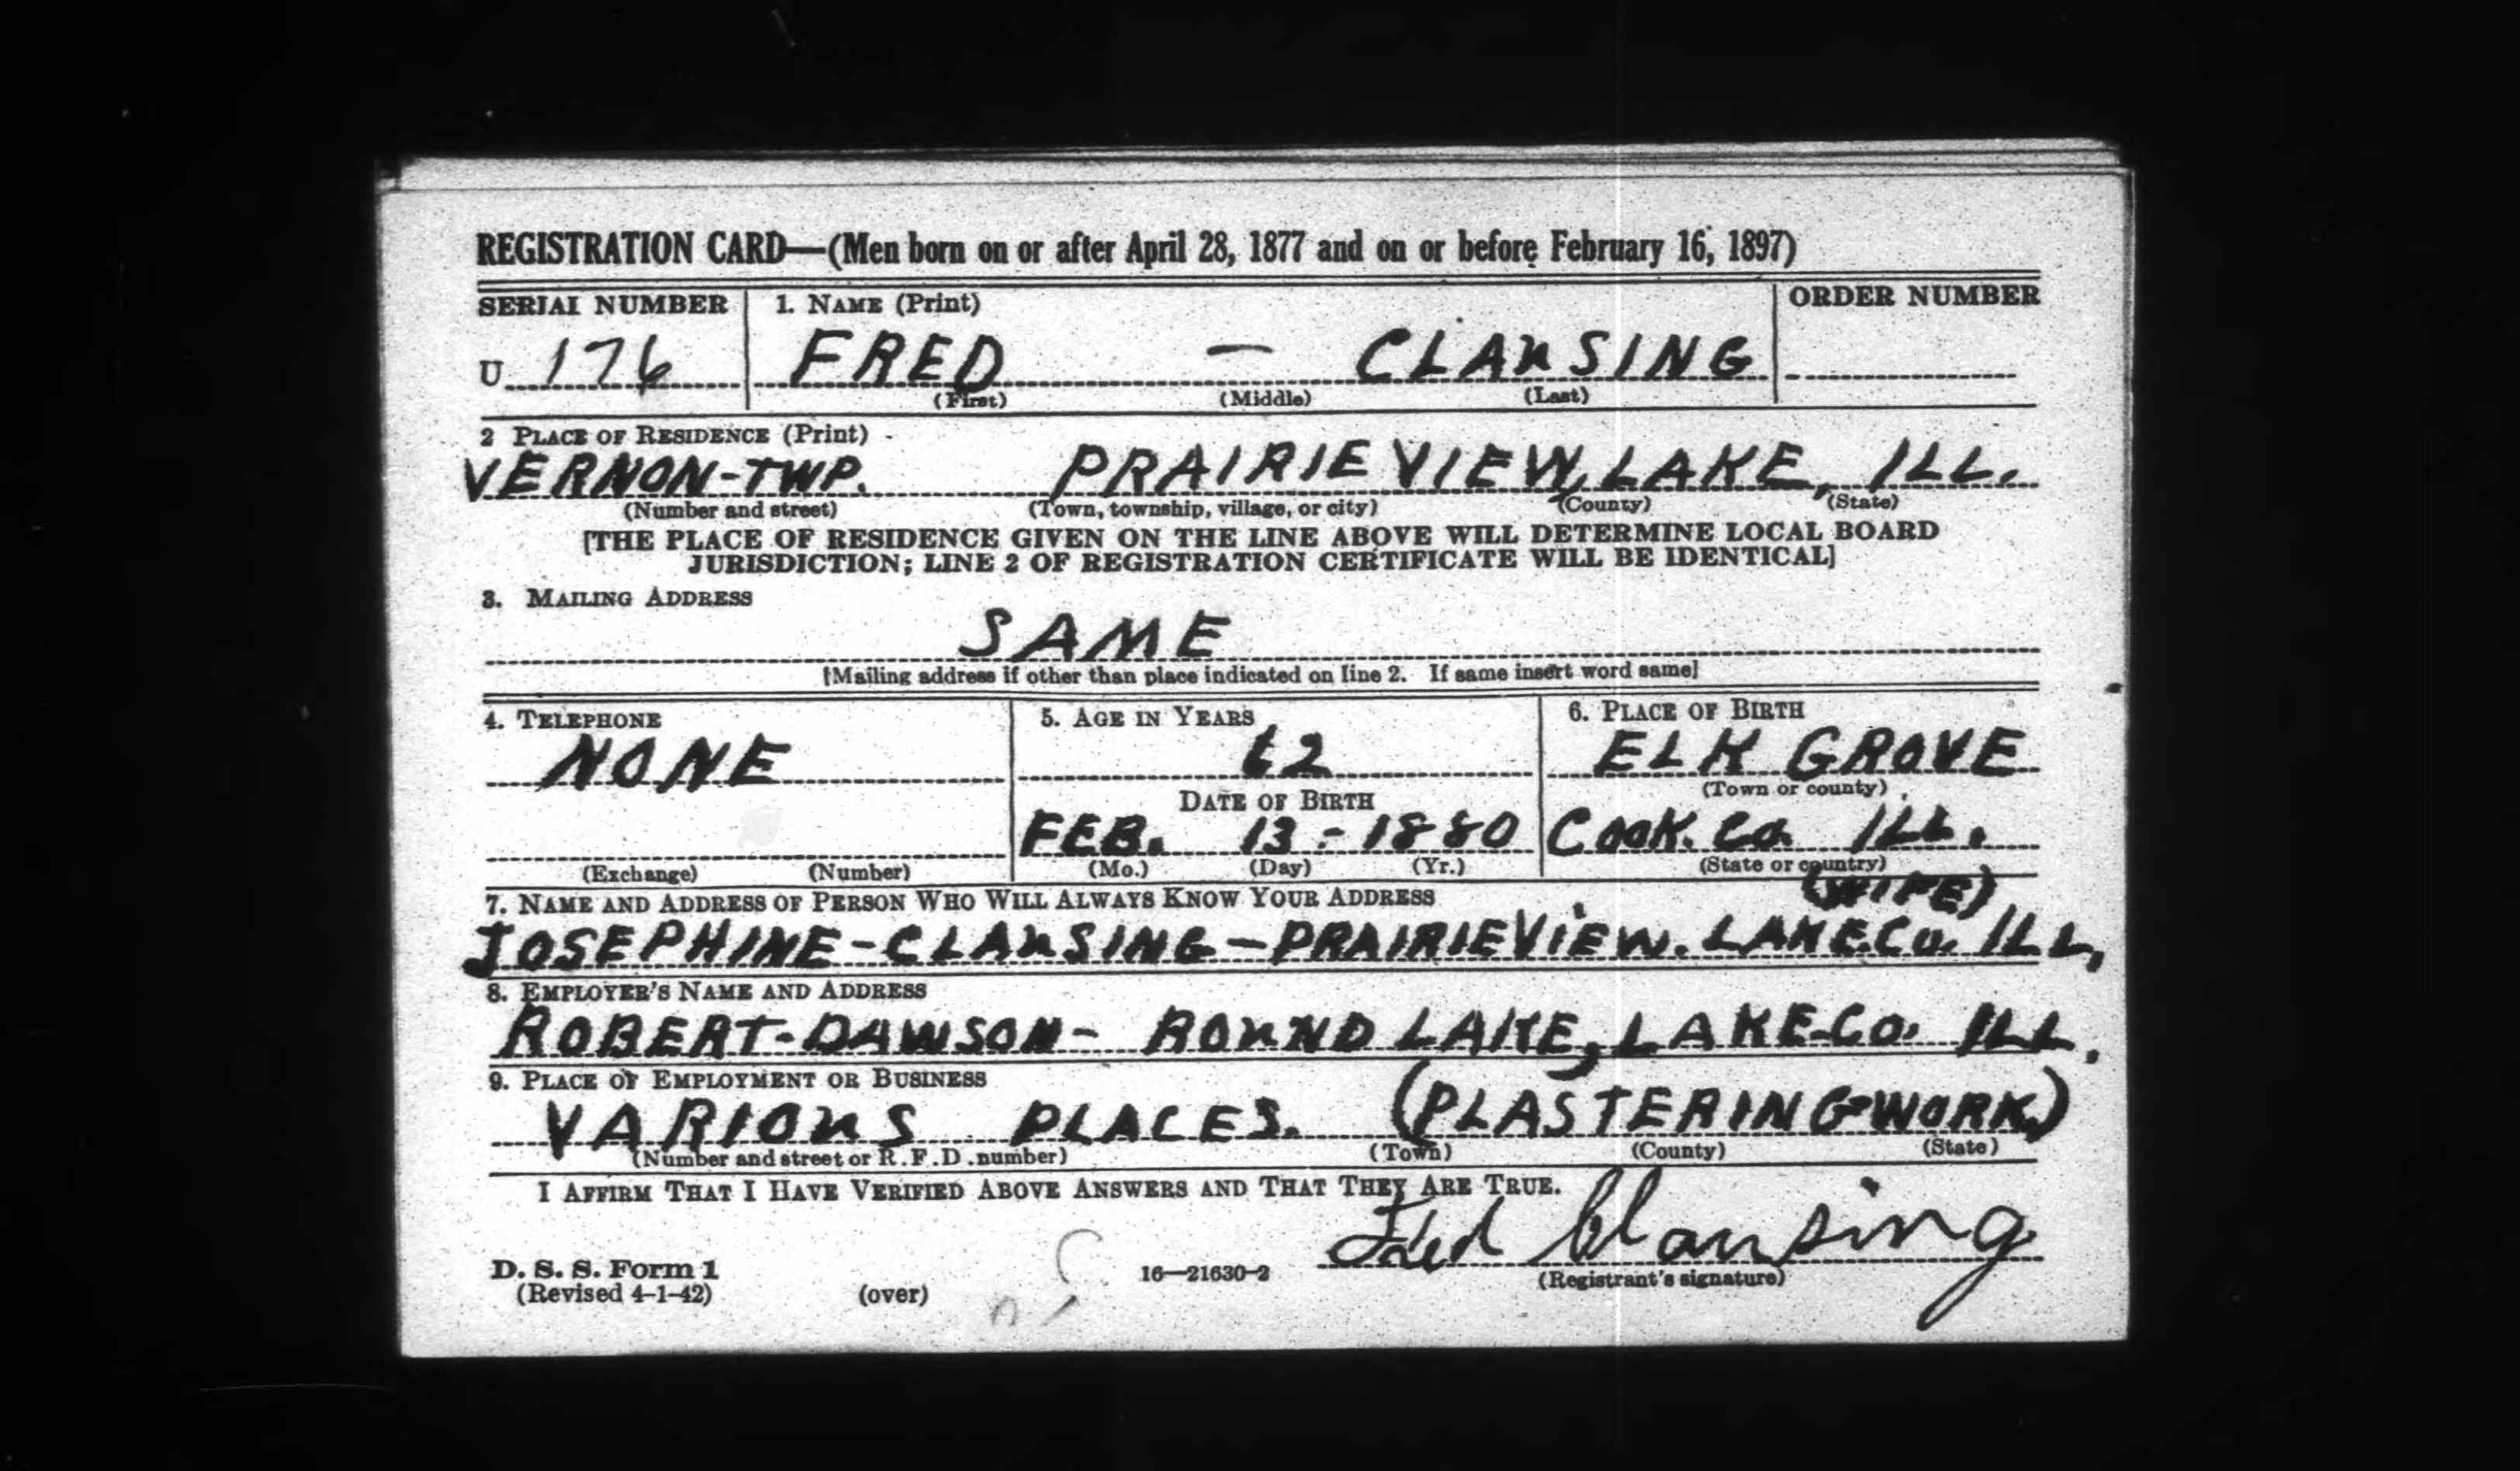 REGISTRATION CARD—(Men born on or after April 28, 1877 and on or before February 16, 1897)
SERIAL NUMBER 1. NAME (Print) ORDER NUMBER
U 176 FRED — CLAUSING
(First) (Middle) (Last)
2 PLACE OF RESIDENCE (Print)
VERNON-TWP. PRAIRIE VIEW, LAKE, ILL.
(Number and street) (Town, township, village, or city) (County) (State)
[THE PLACE OF RESIDENCE GIVEN ON THE LINE ABOVE WILL DETERMINE LOCAL BOARD
JURISDICTION; LINE 2 OF REGISTRATION CERTIFICATE WILL BE IDENTICAL]
3. MAILING ADDRESS
SAME
[Mailing address if other than place indicated on line 2. If same insert word same]
4. TELEPHONE 5. AGE IN YEARS 6. PLACE OF BIRTH
NONE 62 ELK GROVE
(Town or county)
DATE OF BIRTH
FEB. 13-1880 COOK. CO. ILL.
(Exchange) (Number) (Mo.) (Day) (Yr.) (State or country)
7. NAME AND ADDRESS OF PERSON WHO WILL ALWAYS KNOW YOUR ADDRESS (WIFE)
JOSEPHINE-CLAUSING-PRAIRIEVIEW. LAKE.CO. ILL.
8. EMPLOYER'S NAME AND ADDRESS
ROBERT-DAWSON- ROUND LAKE, LAKE-CO. ILL.
9. PLACE OF EMPLOYMENT OR BUSINESS
VARIOUS PLACES. (PLASTERING-WORK.)
(Number and street or R.F.D. number) (Town) (County) (State)
I AFFIRM THAT I HAVE VERIFIED ABOVE ANSWERS AND THAT THEY ARE TRUE.
Fred Clausing
D. S. S. Form 1 16—21630-2 (Registrant's signature)
(Revised 4-1-42) (over)